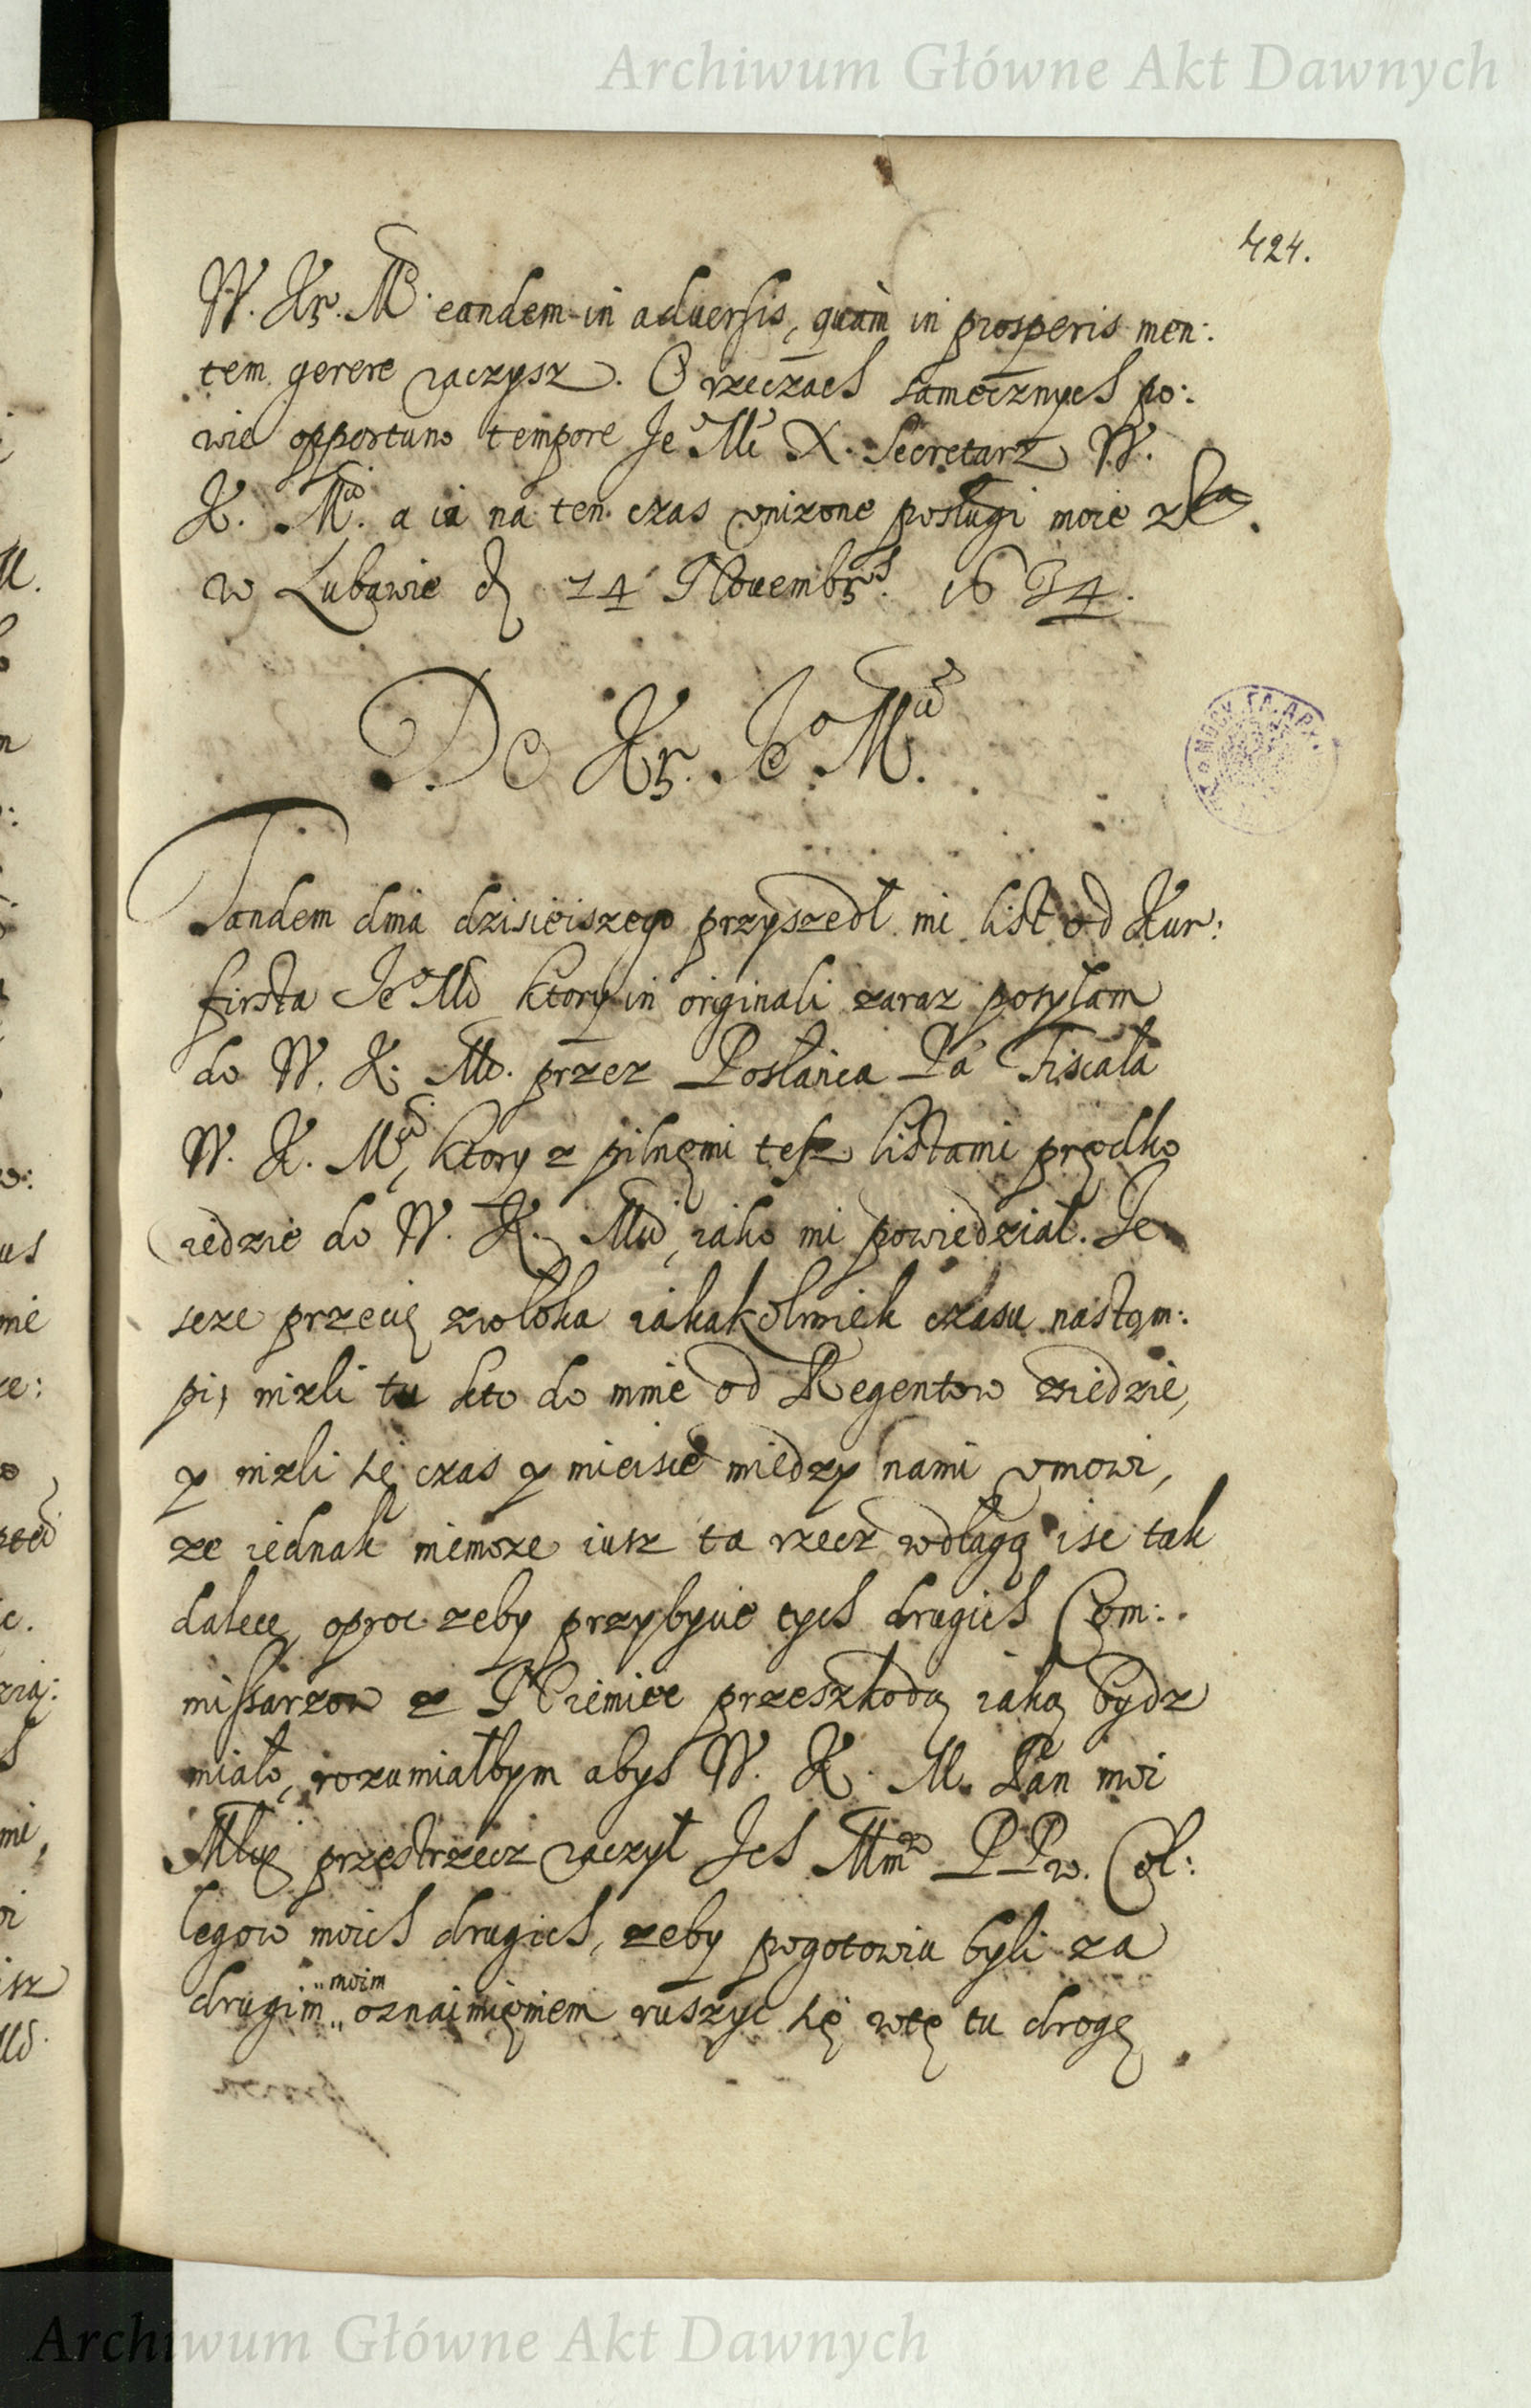 Archiwum Główne Akt Dawnych
424.
W. Kr. Mć. eandem in aduersis, quàm in prosperis men:
tem gerere raczysz. O rzeczach tamecznych po:
wie opportuno tempore Je Mć X. Secretarz W.
K. Mci. a ia na ten czas vnizone posługi moie
w Lubawie d 14 Nouembris. 1634.
Do Kr. Je° Mci.
Tandem dnia dzisieiszego przyszedł mi list od Kur:
firsta Je° Mci ktory in originali zaraz posyłam
do W. K. Mci. przez Posłańca Pa Fiscała
W. K. Mci, ktory z pilnemi tesz listami prędko
iedzie do W. K. Mci, iako mi powiedział. Je
scze przecię zwłoka iakakolwiek czasu nastąm:
pi, nizli tu kto do mnie od Regentow ziedzie,
y nizli sie czas y mieisce miedzy nami vmowi,
ze iednak niemoze iusz ta rzecz wdługą isc tak
dalece, oproc zeby przybycie tych drugich Com:
missarzow z Niemiec przeszkodą iaką bydz
miało, rozumiałbym abys W. K. M. Pan moi
Mlwy przestrzecz raczył Ich Mm PPw. Col:
legow moich drugich, zeby pogotowiu byli za
drugim moim oznaimieniem ruszyc się wtę tu drogę
Archiwum Główne Akt Dawnych